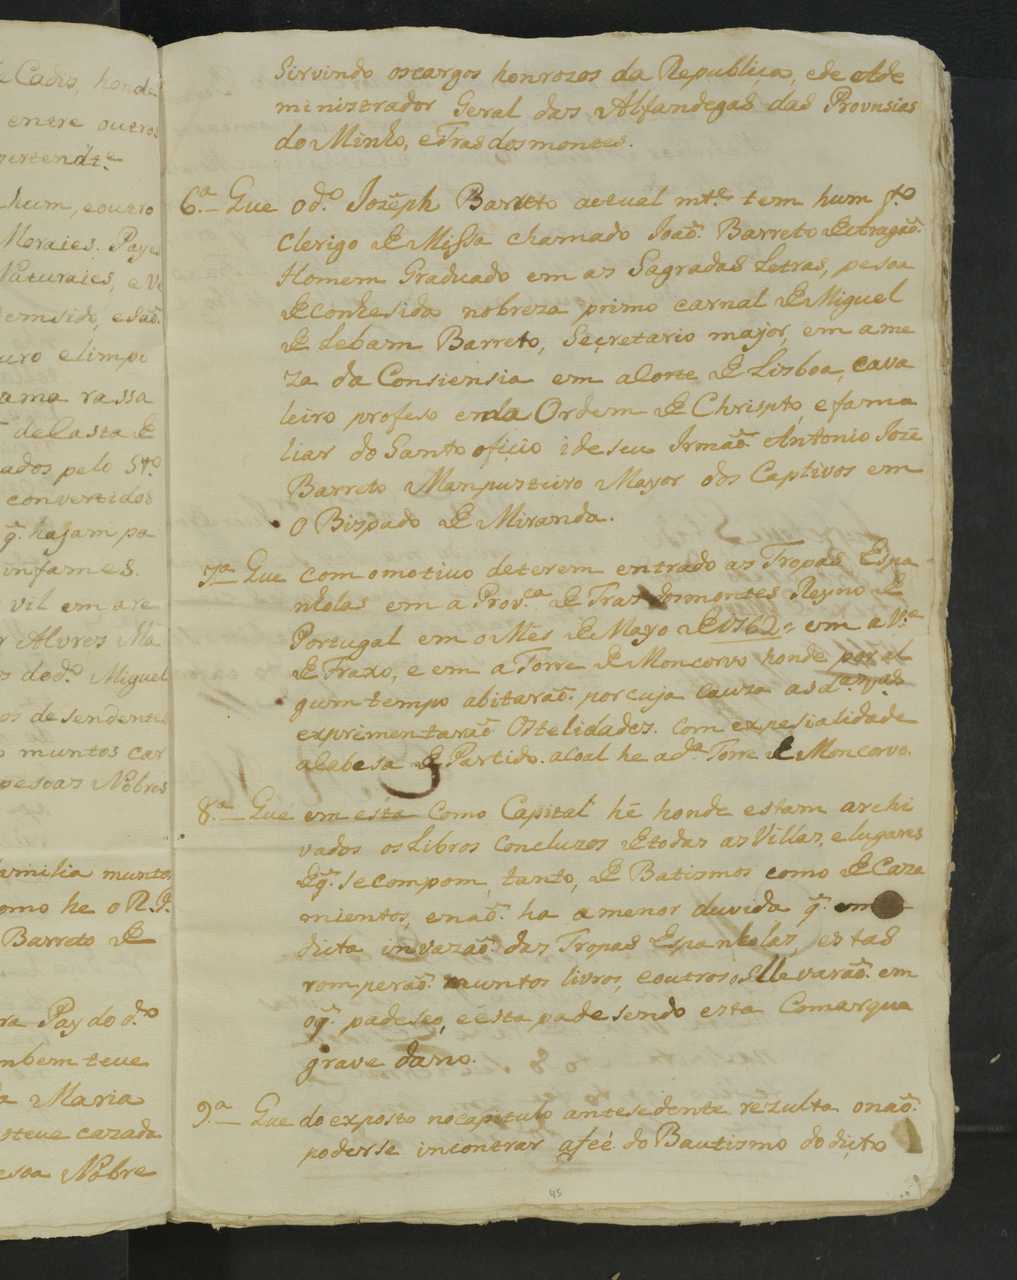 e Cadis, honde
entre outros
pertendte
hum, e outro
Moraies. Payes
Naturaies, e Ve
tem sido, e saõ.
uro e limpo
ama rassa
de Casta E
ados pelo Sto.
convertidos
q. hajam pa
infames.
vil em are
r Alvres Ma
s do d.º Miguel
os desendentes
muntos car
pesoas Nobres
familia muntos
omo he o R. P.
Barreto DE
ra Pay do d.º
mbem teue
a Maria
steue cazada
esoa Nobre
Sirvindo os cargos honrozos da Republica, e de o Ade
ministrador Geral das Alfandegas das Provusias
do Minho, e Tras dos montes.
6.ª Que o d.º Jozêph Barreto actual mte. tem hum fº
Clerigo DE Missa chamado Joaõ. Barreto DE Aragaõ.
Homem Graduado em as Sagradas Letras, pesoa
DE conhesida nobreza primo carnal DE Miguel
DE Lebam Barreto, Secretario major, em a me
za da Consiensia em a Corte DE Lisboa, cava
leiro profeso en da Ordem DE Chrispto, e fama
liar do Santo oficio i de seu Irmaõ Antonio Jozê
Barreto Manpusteiro Mayor dos Captivos em
O Bispado DE Miranda.
7.ª Que com o motiuo de terem entrado as Tropas Espa-
nholas em a Prov.ª DE Tras dos montes Reyno DE
Portugal em o Mês DE Mayo DE 1762= em a V.ª
DE Fraxo, e em a Torre DE Moncorvo honde por al
gum tempo abitaraõ. por cuja Cauza as d.as
exprimentaraõ Ostelidades. Com expesialidade
a Cabesa DE Partido. a Coal he a d.ª Torre DE Moncorvo.
8.ª Que em esta como Capital hé honde estam archi
vados os Libros Concluzos DE todas as Villas, e lugares
DE q. se compom, tanto, DE Batismos como DE Caza
mientos, e naõ. ha a menor duvida q. em
dicta invazaõ. das Tropas Espanholas, estas
romperaõ. muntos livros, e outros os Elle varaõ. em
o q. padeseo, e ésta padesendo esta Comarqua
grave dano.
9.ª Que do exposto no capitulo antesedente rezulta o naõ.
poderse incontrar a feé do Bautismo do dicto
45